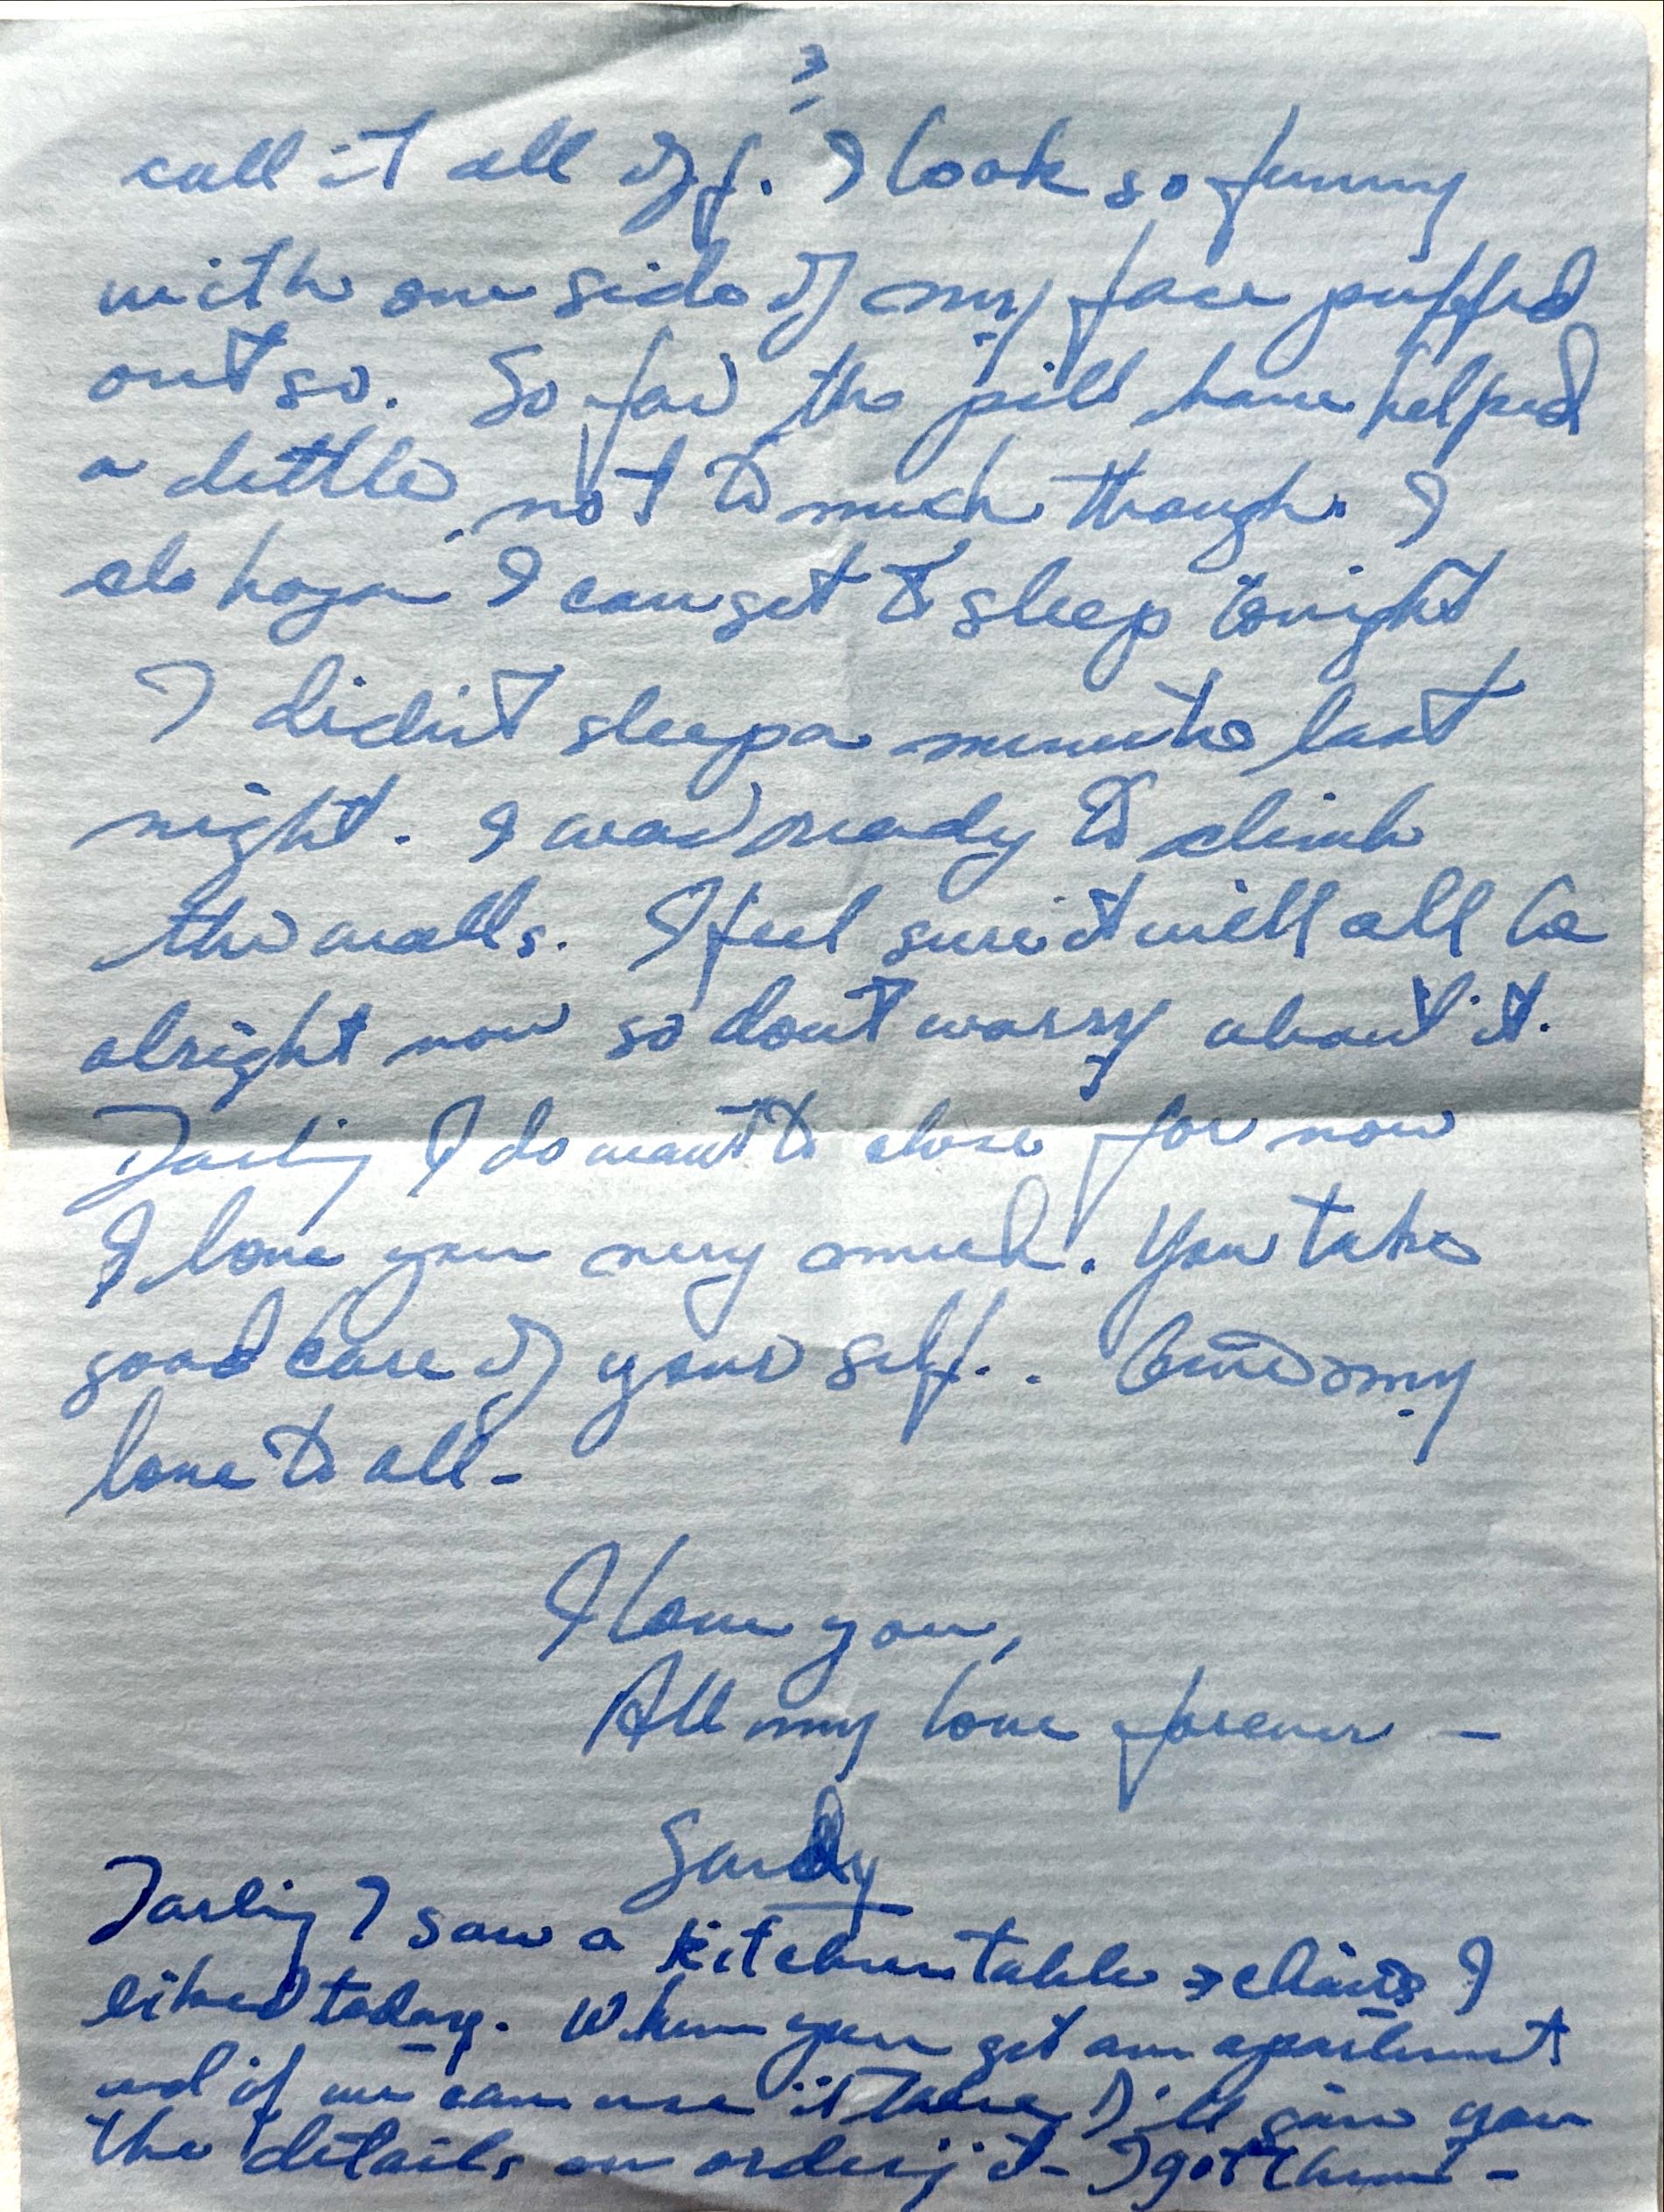 3
call it all off. I look so funny
with one side of my face puffed
out so. So far the pill have helped
a little, not to much though. I
do hope I can get to sleep tonight
I didn't sleep a minute last
night. I was ready to climb
the walls. I feel sure it will all be
alright now so don't worry about it.
Darling I do want to close for now
I love you very much. You take
good care of your self. Give my
love to all-
I love you,
All my love forever -
Sandy
Darling I saw a kitchen table & chairs I
liked today. When you get an apartment
and if we can use it there I'll give you
the details on ordering it - I got them -